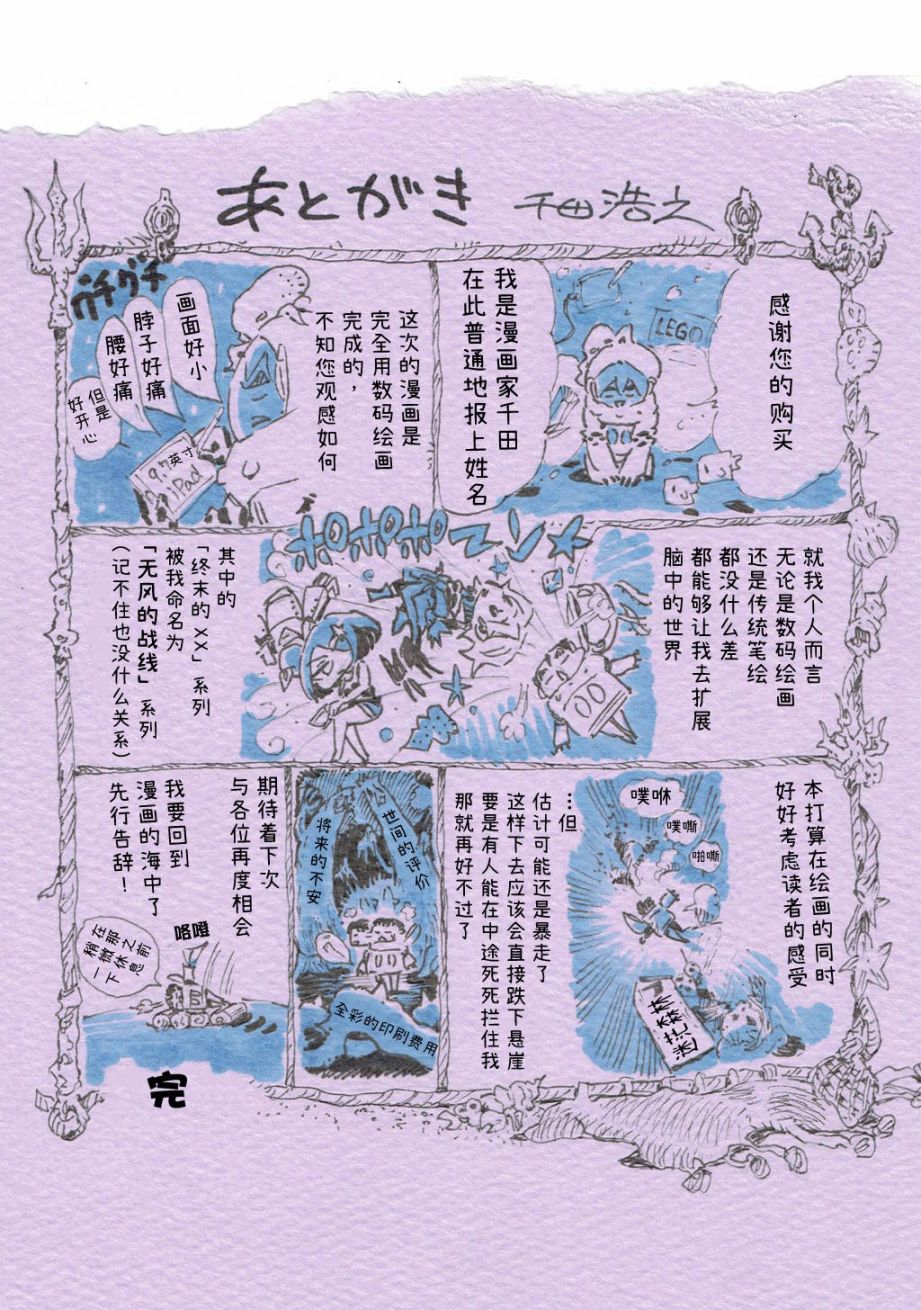 あとがき
千田浩之
感谢您的购买
LEGO
我是漫画家千田
在此普通地报上姓名
这次的漫画是
完全用数码绘画
完成的，
不知您观感如何
グチグチ
画面好小
脖子好痛
腰好痛
但是
好开心
9.7英寸
iPad
就我个人而言
无论是数码绘画
还是传统笔绘
都没什么差
都能够让我去扩展
脑中的世界
ポポポポーン
其中的
「终末的XX」系列
被我命名为
「无风的战线」系列
（记不住也没什么关系）
本打算在绘画的同时
好好考虑读者的感受
噗咻
噗嘶
啪嘶
…但
估计可能还是暴走了
这样下去应该会直接跌下悬崖
要是有人能在中途死死拦住我
那就再好不过了
世间的评价
将来的不安
全彩的印刷费用
期待着下次
与各位再度相会
我要回到
漫画的海中了
先行告辞！
咯噔
在那之前
稍微休息
一下
完